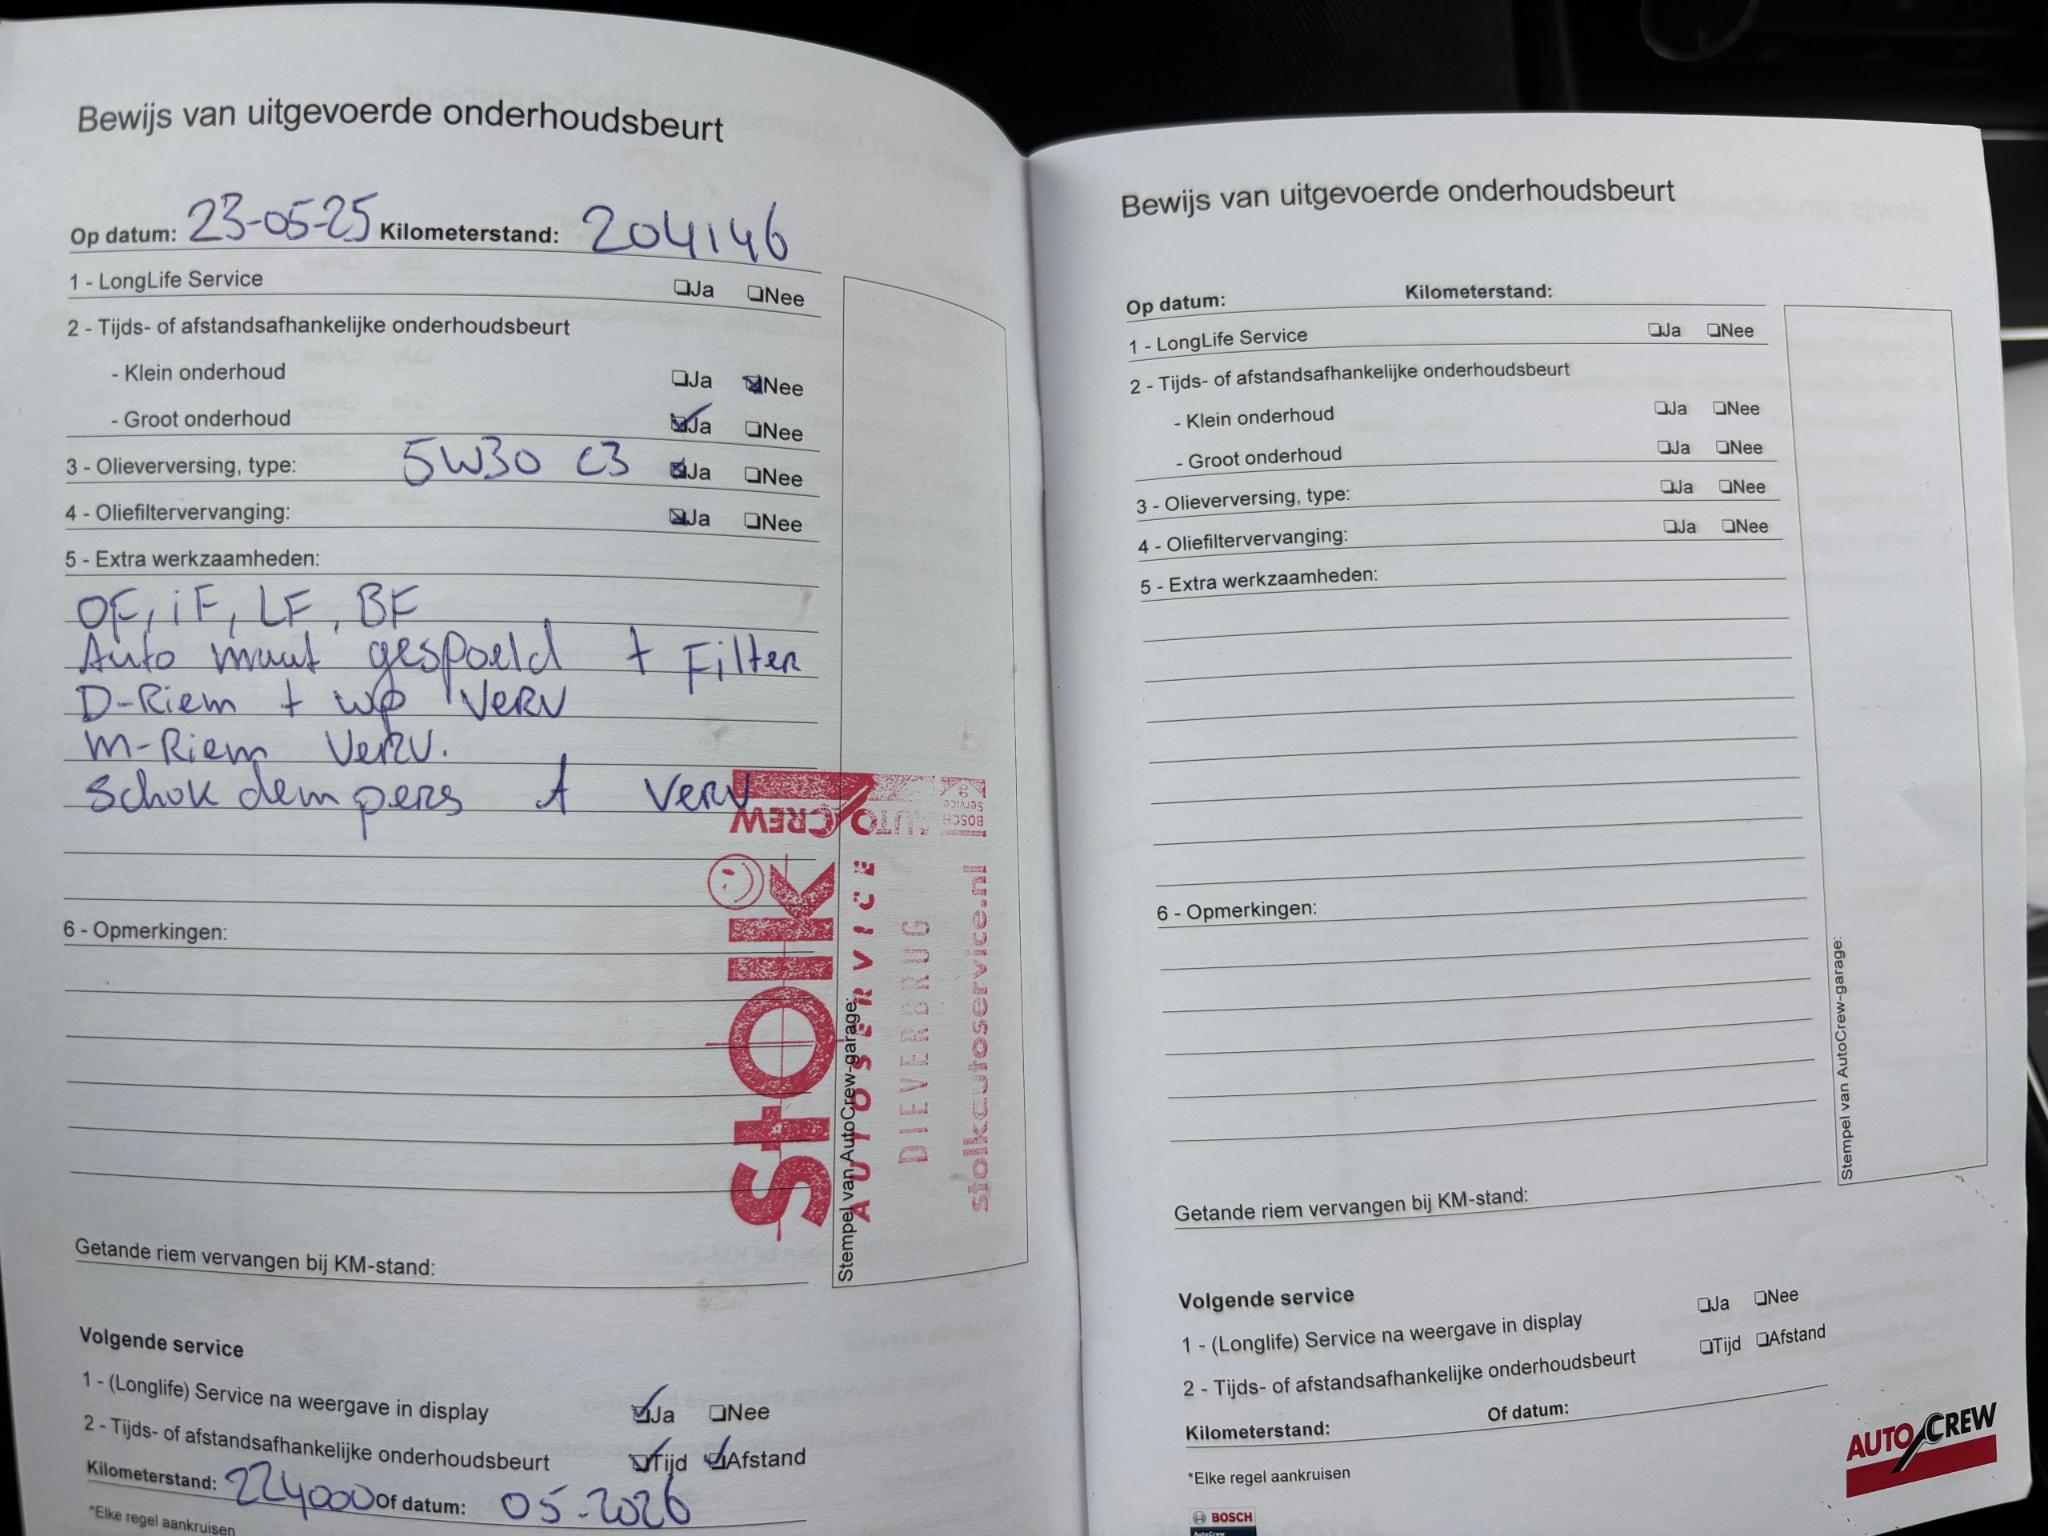 Bewijs van uitgevoerde onderhoudsbeurt
Op datum: 23-05-25 Kilometerstand: 204146
1 - LongLife Service ❑Ja ❑Nee
2 - Tijds- of afstandsafhankelijke onderhoudsbeurt
- Klein onderhoud ❑Ja ☒Nee
- Groot onderhoud ☑Ja ❑Nee
3 - Olieverversing, type: 5W30 C3 ☒Ja ❑Nee
4 - Oliefiltervervanging: ☒Ja ❑Nee
5 - Extra werkzaamheden:
OF, iF, LF, BF
Auto maat gespoeld + Filter
D-Riem + wp Verv
M-Riem Verv.
Schokdempers A Verv
6 - Opmerkingen:
Getande riem vervangen bij KM-stand:
Stempel van AutoCrew-garage:
AUTO CREW
BOSCH
Service
stolk
AUTOSERVICE
DIEVERBRUG
stolkautoservice.nl
Volgende service
1 - (Longlife) Service na weergave in display ☑Ja ❑Nee
2 - Tijds- of afstandsafhankelijke onderhoudsbeurt ☑Tijd ☑Afstand
Kilometerstand: 224000 Of datum: 05-2026
*Elke regel aankruisen
Bewijs van uitgevoerde onderhoudsbeurt
Op datum: Kilometerstand:
1 - LongLife Service ❑Ja ❑Nee
2 - Tijds- of afstandsafhankelijke onderhoudsbeurt
- Klein onderhoud ❑Ja ❑Nee
- Groot onderhoud ❑Ja ❑Nee
3 - Olieverversing, type: ❑Ja ❑Nee
4 - Oliefiltervervanging: ❑Ja ❑Nee
5 - Extra werkzaamheden:
6 - Opmerkingen:
Stempel van AutoCrew-garage:
Getande riem vervangen bij KM-stand:
Volgende service
1 - (Longlife) Service na weergave in display ❑Ja ❑Nee
2 - Tijds- of afstandsafhankelijke onderhoudsbeurt ❑Tijd ❑Afstand
Kilometerstand: Of datum:
*Elke regel aankruisen
AUTO CREW
BOSCH
AutoCrew